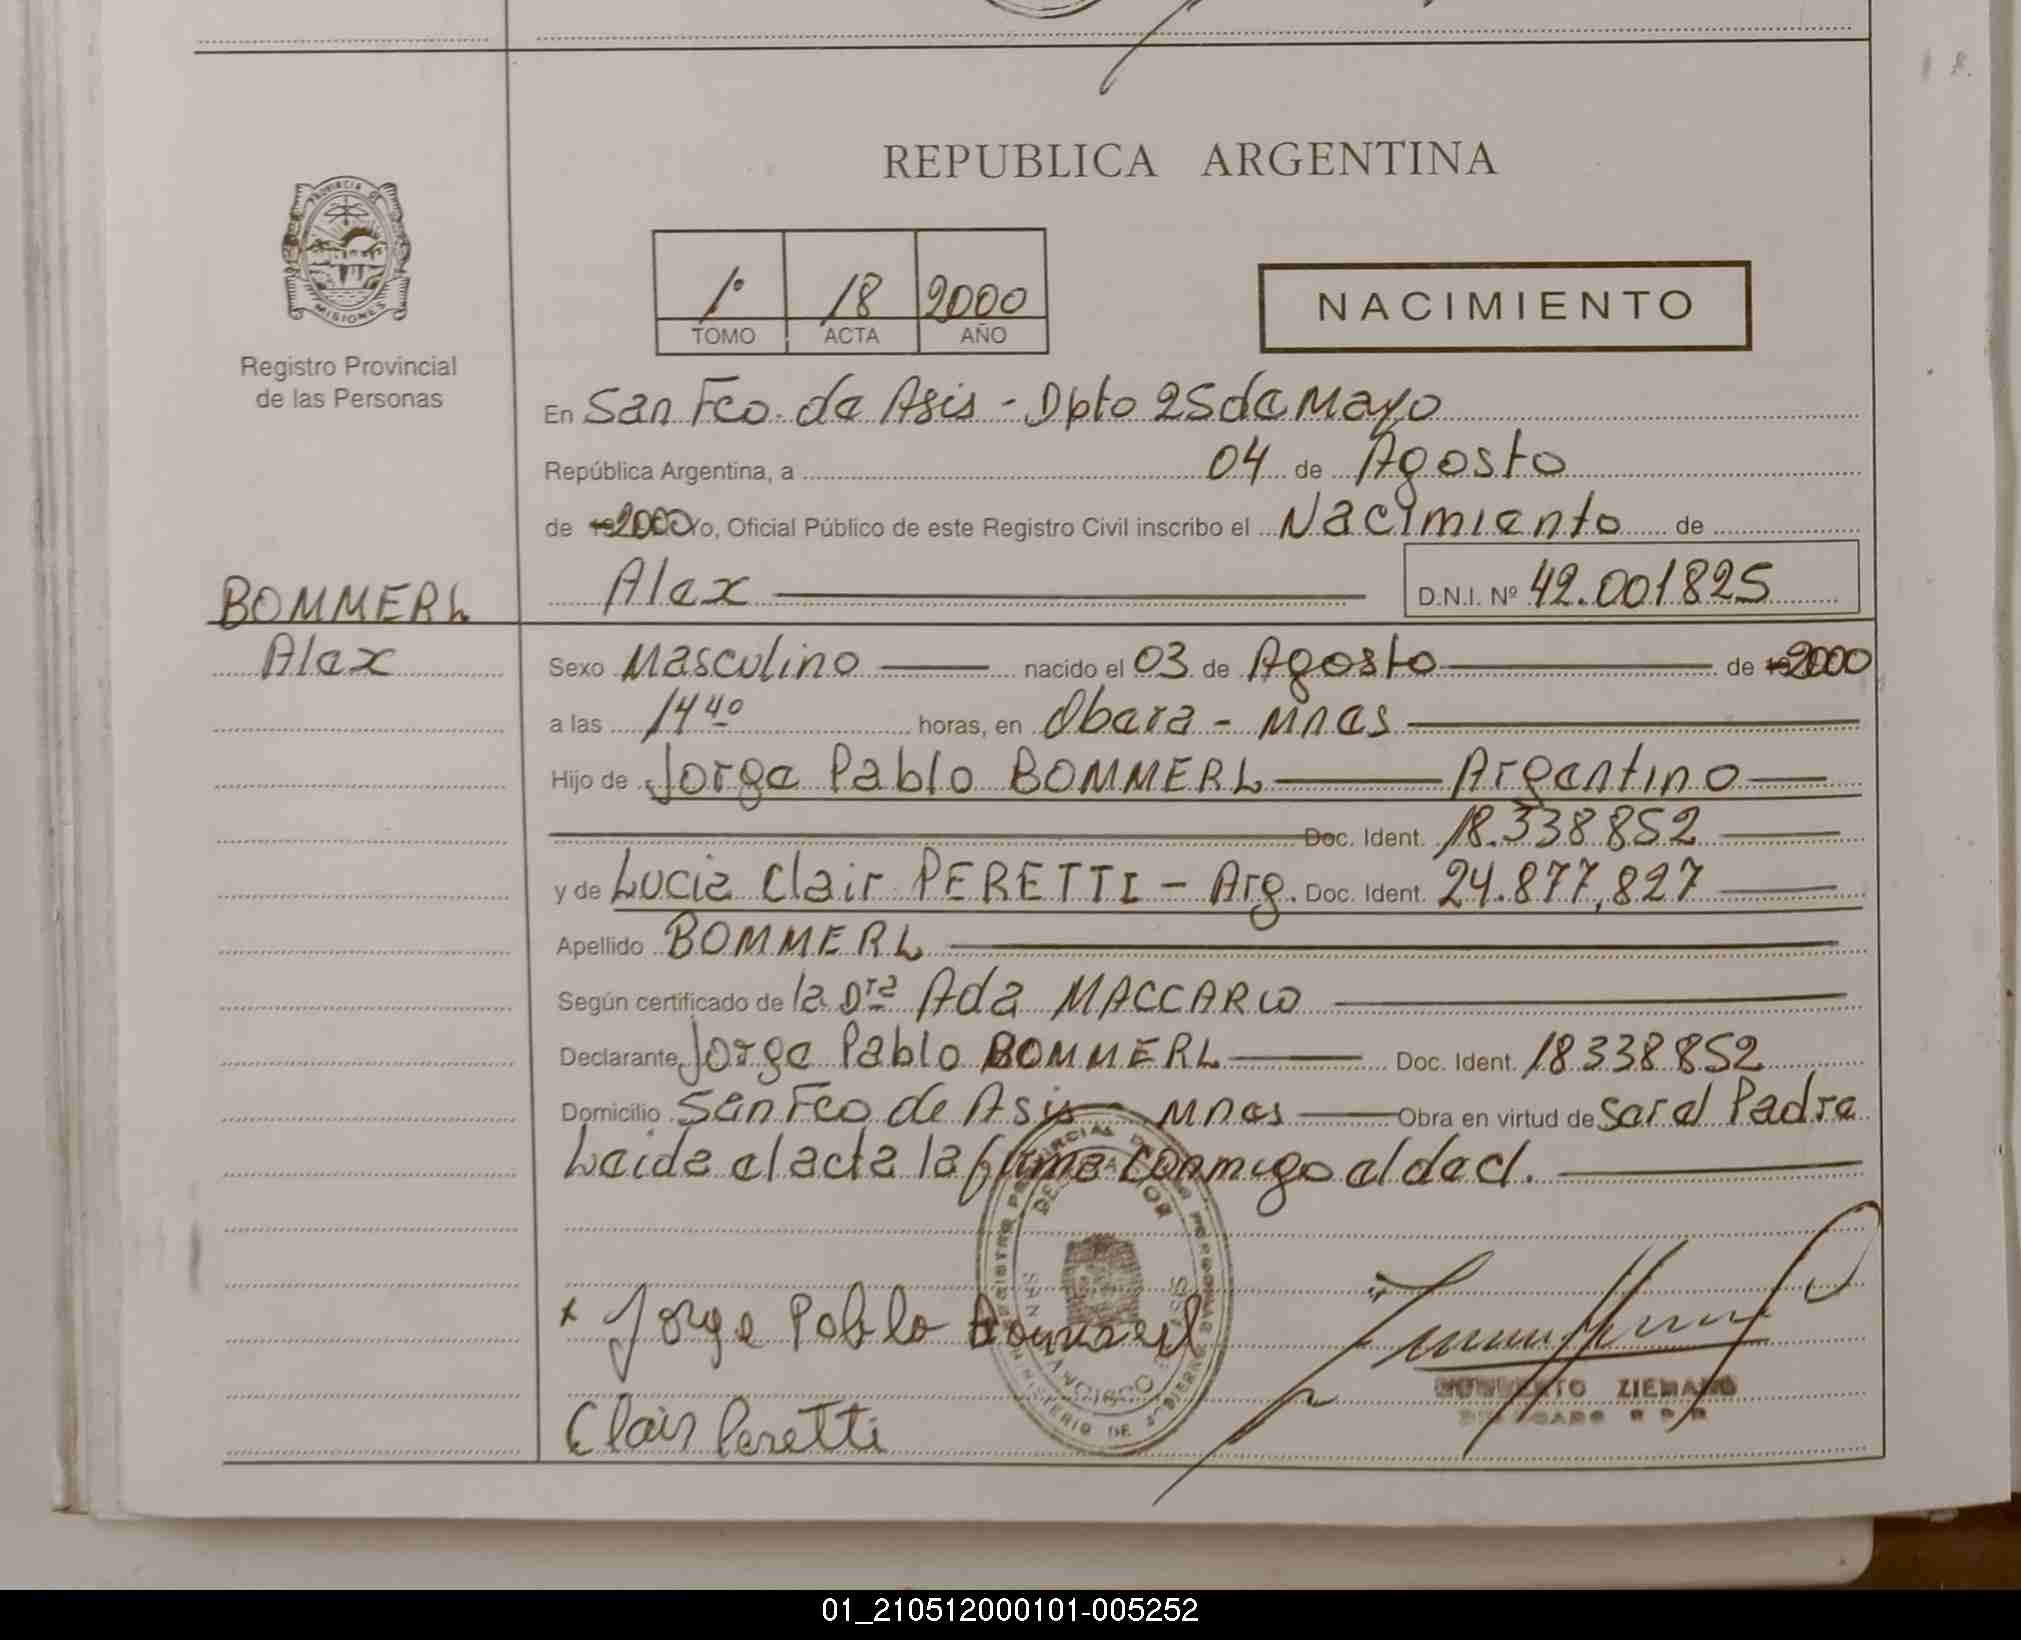 REPUBLICA ARGENTINA
PROVINCIA DE
MISIONES
Registro Provincial
de las Personas
1º 18 2000
TOMO ACTA AÑO
NACIMIENTO
En San Fco. de Asis - Dpto 25 de Mayo
República Argentina, a 04 de Agosto
de 2000 Yo, Oficial Público de este Registro Civil inscribo el Nacimiento de
Alex D.N.I. Nº 42.001825
BOMMERL
Alex
Sexo Masculino nacido el 03 de Agosto de 2000
a las 14 40 horas, en Obera - Mnes
Hijo de Jorge Pablo BOMMERL Argentino
Doc. Ident. 18.338.852
y de Lucia Clair PERETTI - Arg. Doc. Ident. 24.877.827
Apellido BOMMERL
Según certificado de la Dra Ada MACCARIO
Declarante Jorge Pablo BOMMERL Doc. Ident. 18338852
Domicilio San Fco de Asis - Mnes Obra en virtud de Ser el Padre
Leida el acta la firma conmigo el decl.
x Jorge Pablo Bommerl
ZIEMANN
Clair Peretti
01_210512000101-005252